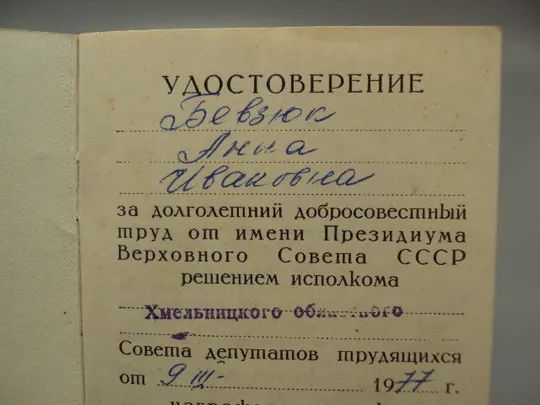 УДОСТОВЕРЕНИЕ
Бевзюк
Анна
Ивановна
за долголетний добросовестный
труд от имени Президиума
Верховного Совета СССР
решением исполкома
Хмельницкого областного
Совета депутатов трудящихся
от 9 III- 1977 г.